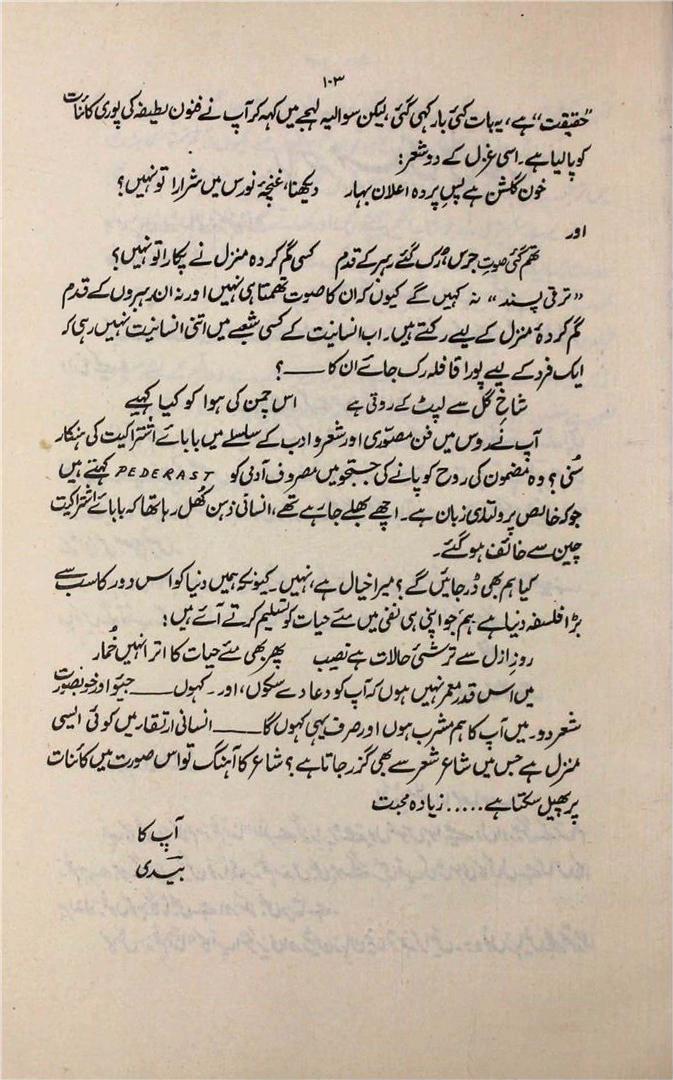 ۱۰۳
”حقیقت“ ہے، یہ بات کئی بار کہی گئی، لیکن سوالیہ لہجے میں کہہ کر آپ نے فنون لطیفہ کی پوری کائنات
کو پا لیا ہے۔ اسی غزل کے دو شعر:
خون گلشن ہے پسِ پردہ اعلان بہار دیکھنا، غنچۂ نورس میں شرارا تو نہیں؟
اور
تھم گئی صوتِ جرس، رک گئے رہبر کے قدم کسی گم کردہ منزل نے پکارا تو نہیں؟
”ترقی پسند“ نہ کہیں گے کیوں کہ ان کا صوت تھمتا ہی نہیں اور نہ ان رہبروں کے قدم
گم کردۂ منزل کے لیے رکتے ہیں۔ اب انسانیت کے کسی شعبے میں اتنی انسانیت نہیں رہی کہ
ایک فرد کے لیے پورا قافلہ رک جائے ان کا ——؟
شاخِ گل سے لپٹ کے روتی ہے اس چمن کی ہوا کو کیا کہیے
آپ نے روس میں فن مصوّری اور شعر و ادب کے سلسلے میں بابائے اشتراکیت کی ہنکار
سُنی؟ وہ مضمون کی روح کو پانے کی جستجو میں مصروف آدمی کو PEDERAST کہتے ہیں
جو کہ خالص پرولتاری زبان ہے۔ اچھے بھلے جا رہے تھے، انسانی ذہن کُھل رہا تھا کہ بابائے اشتراکیت
چین سے خائف ہو گئے۔
کیا ہم بھی ڈر جائیں گے؟ میرا خیال ہے، نہیں۔ کیونکہ ہمیں دنیا کو اس دور کا سب سے
بڑا فلسفہ دنیا ہے ہم جو اپنی ہی نفی میں مئے حیات کو تسلیم کرتے آئے ہیں:
روزِ ازل سے ترشئی حالات ہے نصیب پھر بھی مئے حیات کا اترا نہیں خُمار
میں اس قدر معمر نہیں ہوں کہ آپ کو دعا دے سکوں، اور۔ کہوں —— جیو اور خوبصورت
شعر دو۔ میں آپ کا ہم مشرب ہوں اور صرف یہی کہوں گا —— انسانی ارتقاء میں کوئی ایسی
منزل ہے جس میں شاعر شعر سے بھی گزر جاتا ہے؟ شاعر کا آہنگ تو اس صورت میں کائنات
پر پھیل سکتا ہے..... زیادہ محبت
آپ کا
بیدی